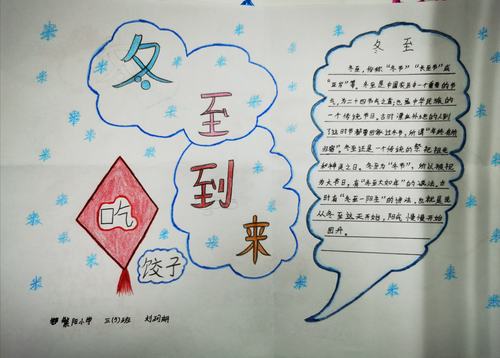 冬
至
到
来
吃
饺子
冬至
冬至，俗称“冬节”“长至节”或
“亚岁”等。冬至是中国农历中一个重要的节
气，为二十四节气之首；也是中华民族的
一个传统节日。古时漂在外地的人到
了这时节都要回家过冬节，所谓“年终有所
归宿”。冬至还是一个传统的祭祝祖先
和神灵之日。冬至为“冬节”，所以被视
为大节日，有“冬至大如年”的说法。古
时有“冬至一阳生”的讲法，也就是说
从冬至这天开始，阳气慢慢开始
回升。
紫阳小学 三(5)班